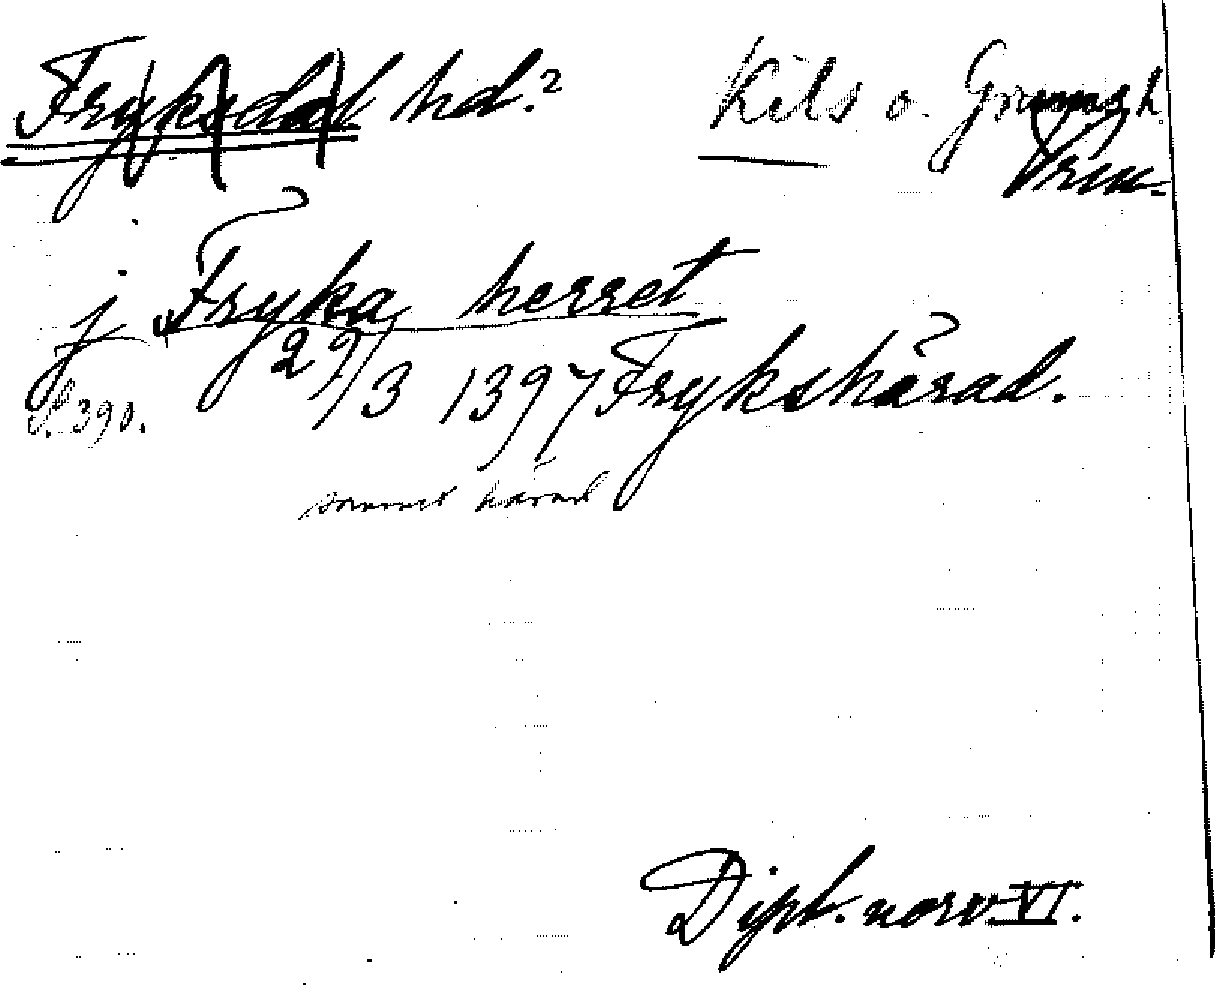 Fryksdal hd.? Kils o. Grums h.
j Fryka herret
S. 390. 29/3 1397 Frykshärad.
samma härad
Dipl. norv. VI.